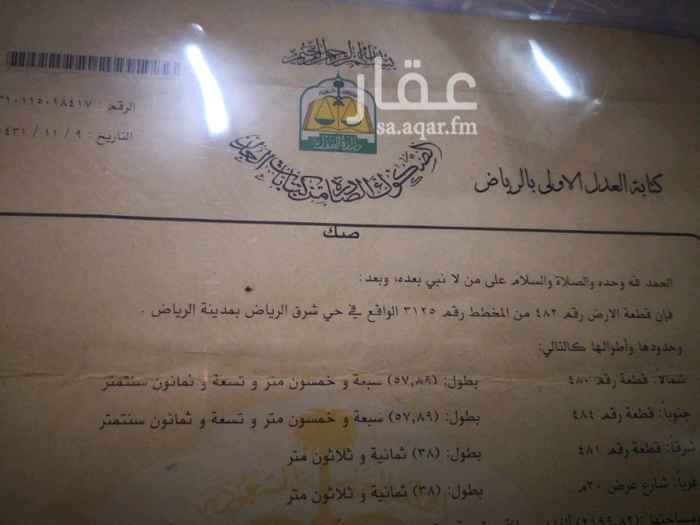 بسم الله الرحمن الرحيم
عقار
sa.aqar.fm
وزارة العدل
الرقم : ٣١٠١١٥٠١٨٤١٧
التاريخ : ٩ / ١١ / ١٤٣١
كتابة العدل الاولى بالرياض
الصكوك الصادرة من كتابات العدل
صك
الحمد لله وحده والصلاة والسلام على من لا نبي بعده، وبعد:
فإن قطعة الارض رقم ٤٨٢ من المخطط رقم ٣١٢٥ الواقع في حي شرق الرياض بمدينة الرياض .
وحدودها وأطوالها كالتالي:
شمالا: قطعة رقم ٤٨٠ بطول: (٥٧,٨٩) سبعة و خمسون متر و تسعة و ثمانون سنتمتر
جنوبا: قطعة رقم ٤٨٤ بطول: (٥٧,٨٩) سبعة و خمسون متر و تسعة و ثمانون سنتمتر
شرقا: قطعة رقم ٤٨١ بطول: (٣٨) ثمانية و ثلاثون متر
غربا: شارع عرض ٢٠م بطول: (٣٨) ثمانية و ثلاثون متر